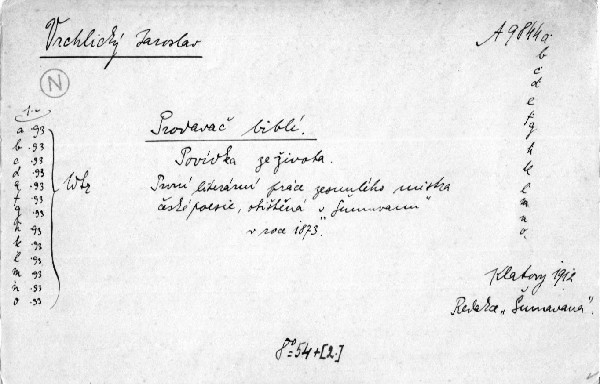 Vrchlický Jaroslav
A 9844 a
b
c
d
e
f
g
h
k
l
m
n
o.
N
1.-
a .93
b .93
c .93
d .93
e .93
f .93
g .93
h .93
k .93
l .93
m .93
n .93
o .93
Prodavač biblí.
Povídka ze života.
První literární práce zesnulého mistra
české poesie, otištěná v „Šumavanu"
v roce 1873.
Klatovy 1912
Redakce „Šumavana".
8°=54+[2.]